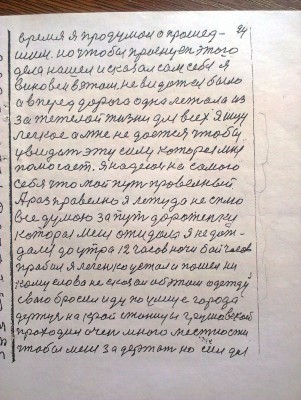 24
время я продумал о прошед-
шим. но чтобы проснутся этого
дела нашел и сказал сам себя я
виновен в этом, не видится было
а вперед дорога одна летала из
за тяжелой жизни для всех я ищу
легкое а мне не дается чтобы
увидать эту силу которая мне
помогает. я надеюсь на самого
себя что мой путь правельный.
А раз правельно я лету до не сплю
все думаю за путь дороженку
которая меня ожидала я недож-
дался до утра 12 часов ночи бой часов
пробил я легенько устал и пошел ни
кому слова не сказал об этом одежду
свою бросил и иду по улице города
держусь на край станицы грушовской
проходил очен много местности
чтобы меня задержал но сил для